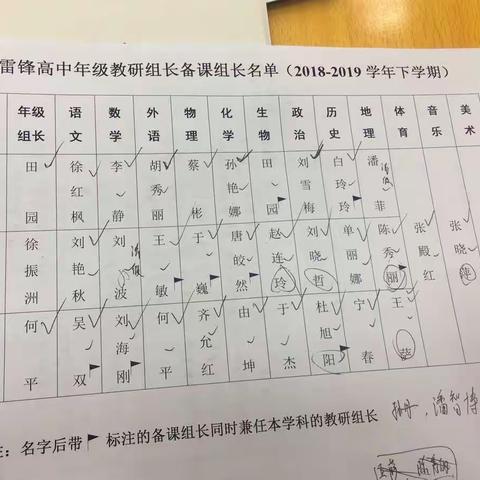 雷锋高中年级教研组长备课组长名单（2018-2019 学年下学期）
年级组长 语文 数学 外语 物理 化学 生物 政治 历史 地理 体育 音乐 美术
田园 徐红枫 李静 胡秀丽 蔡彬 孙艳娜 田园 刘雪梅 白玲玲 潘菲
徐振洲 刘艳秋 刘波 王敏 于巍 唐皎然 赵连玲 刘晓哲 单丽娜 陈秀丽 张殿红 张晓
何平 吴双 刘海刚 何平 齐允红 由坤 于杰 杜旭阳 宁春 王萨
注：名字后带 标注的备课组长同时兼任本学科的教研组长